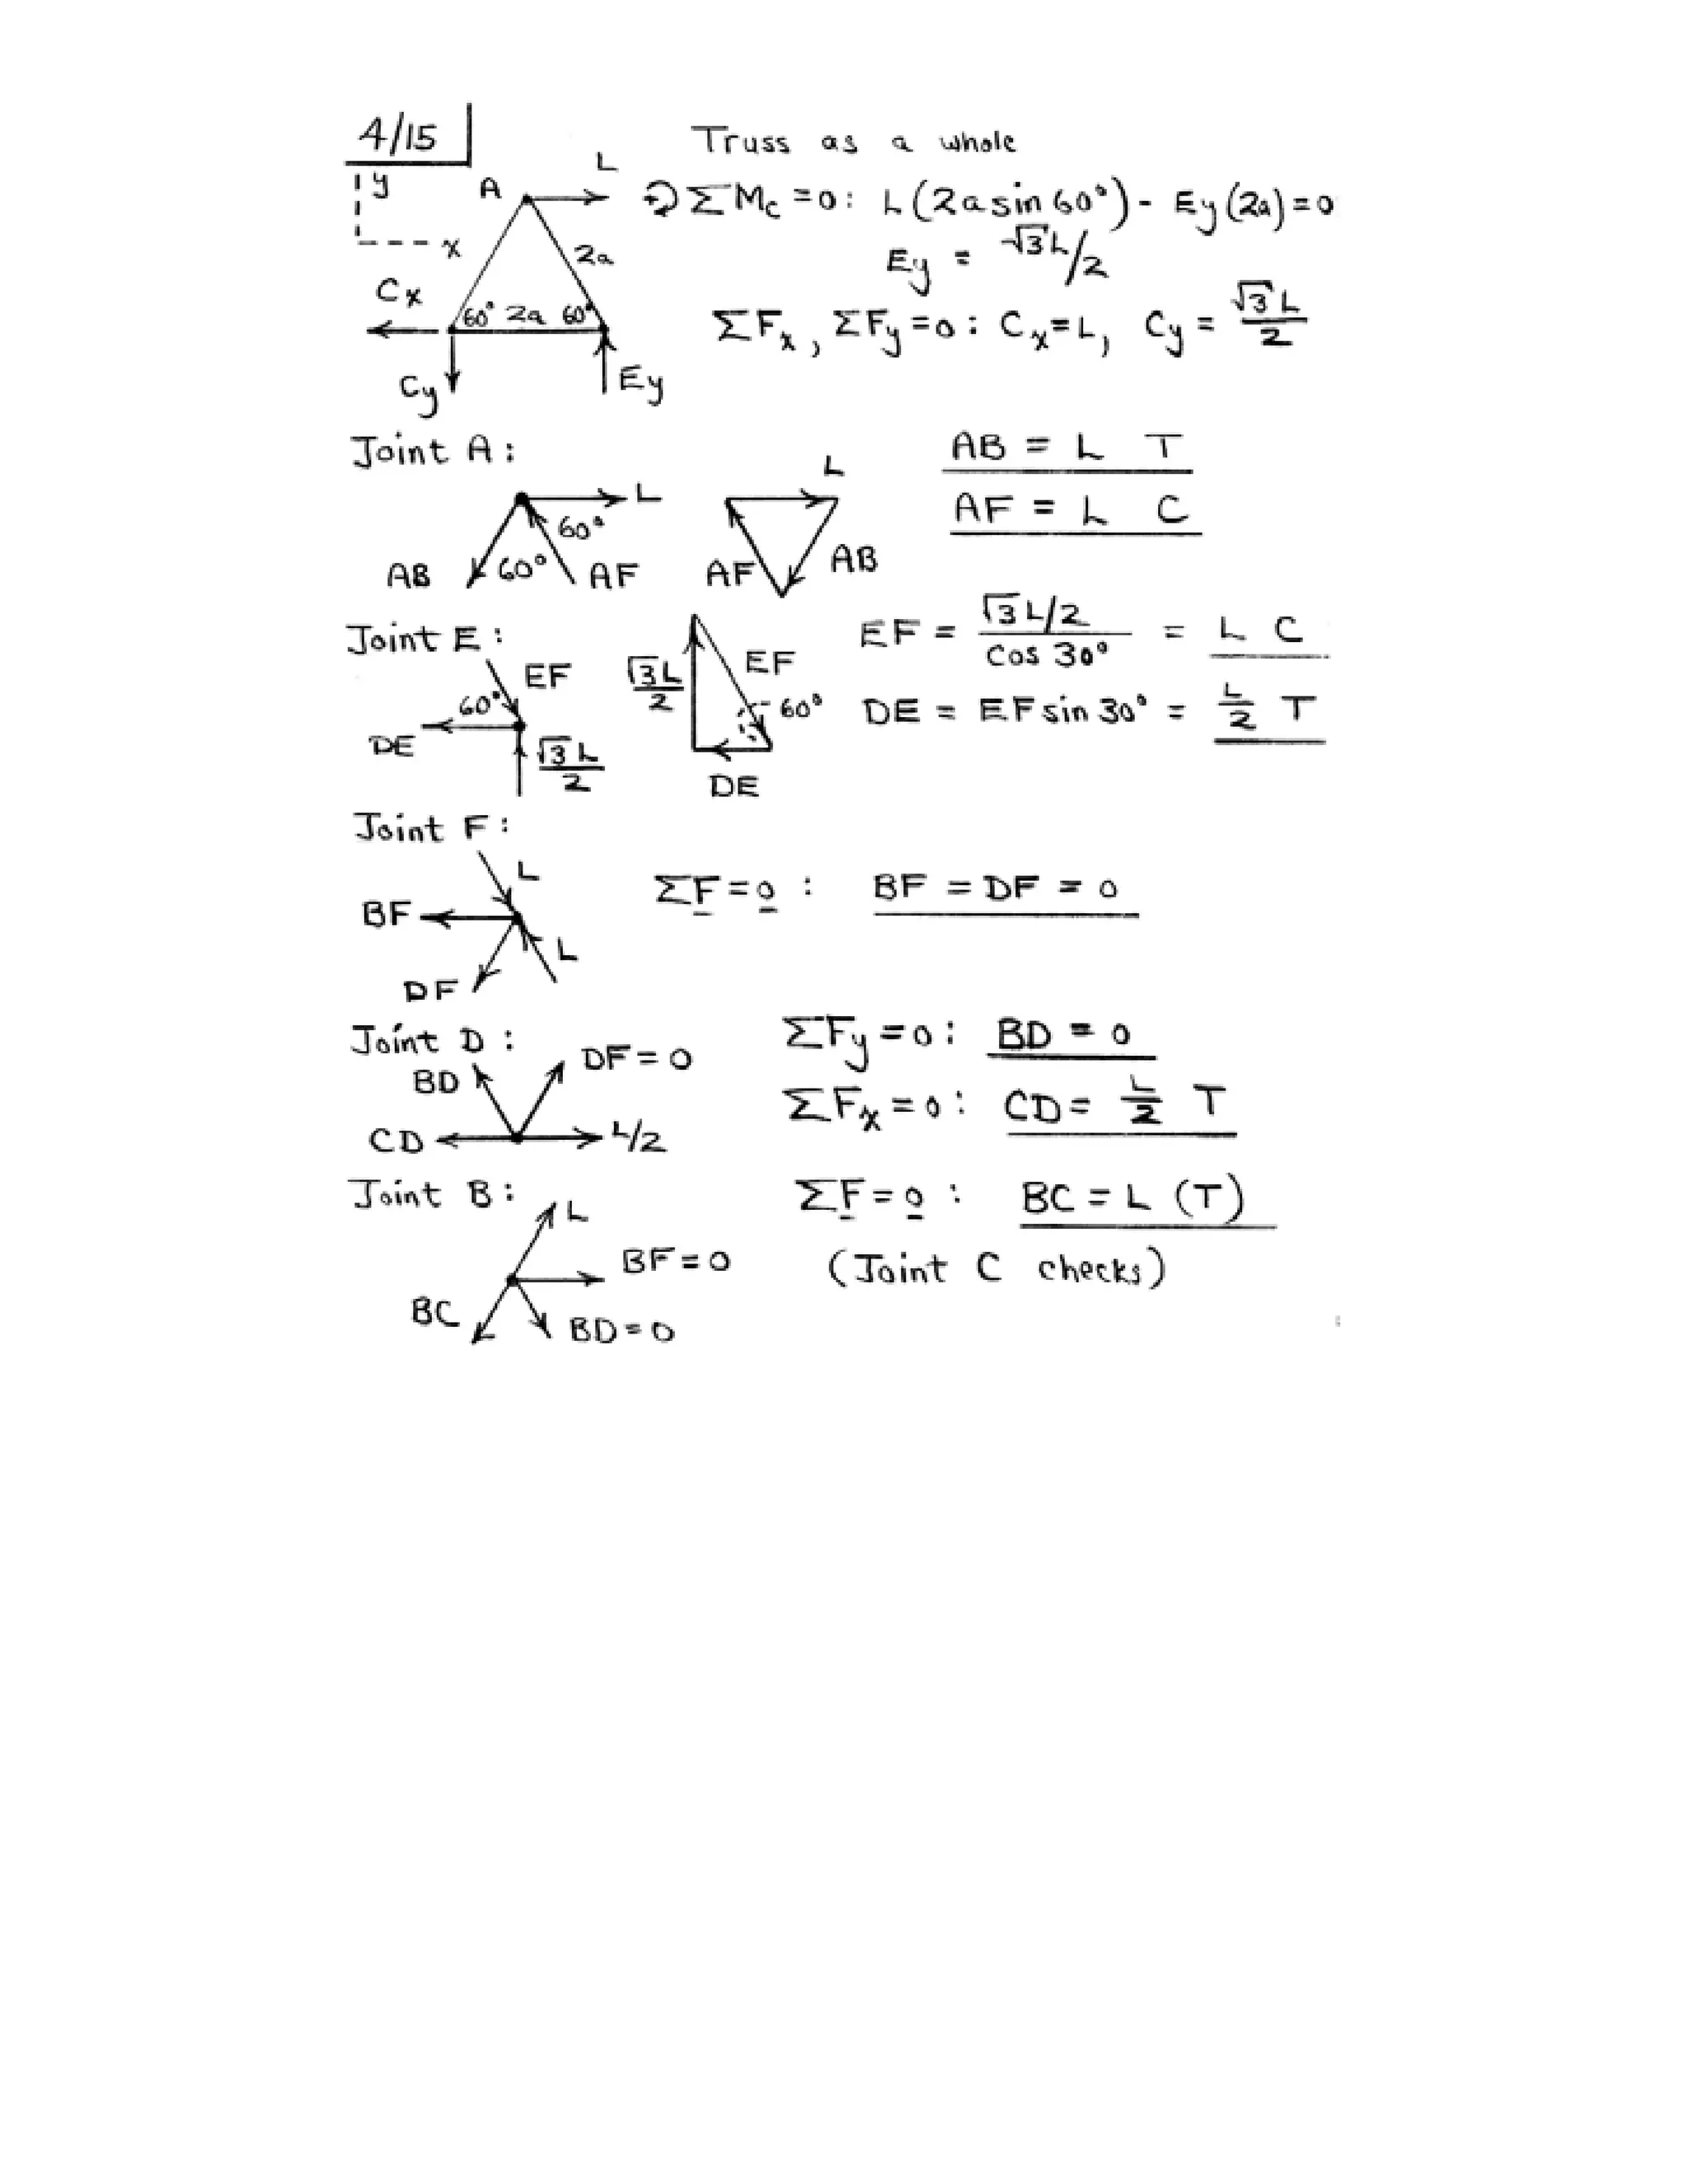 4/15
Truss as a whole
y
A
L
x
2a
Cx
60° 2a 60°
Cy
Ey
↻ΣMc = 0: L(2a sin 60°) - Ey(2a) = 0
Ey = √3L/2
ΣFx, ΣFy = 0: Cx = L, Cy = √3L/2
Joint A:
L
60°
60°
AB
AF
L
AF
AB
AB = L T
AF = L C
Joint E:
EF
60°
DE
√3L/2
√3L/2
EF
60°
DE
EF = √3L/2 / cos 30° = L C
DE = EF sin 30° = L/2 T
Joint F:
L
BF
L
DF
ΣF = 0: BF = DF = 0
Joint D:
DF = 0
BD
CD
L/2
ΣFy = 0: BD = 0
ΣFx = 0: CD = L/2 T
Joint B:
L
BF = 0
BC
BD = 0
ΣF = 0: BC = L (T)
(Joint C checks)